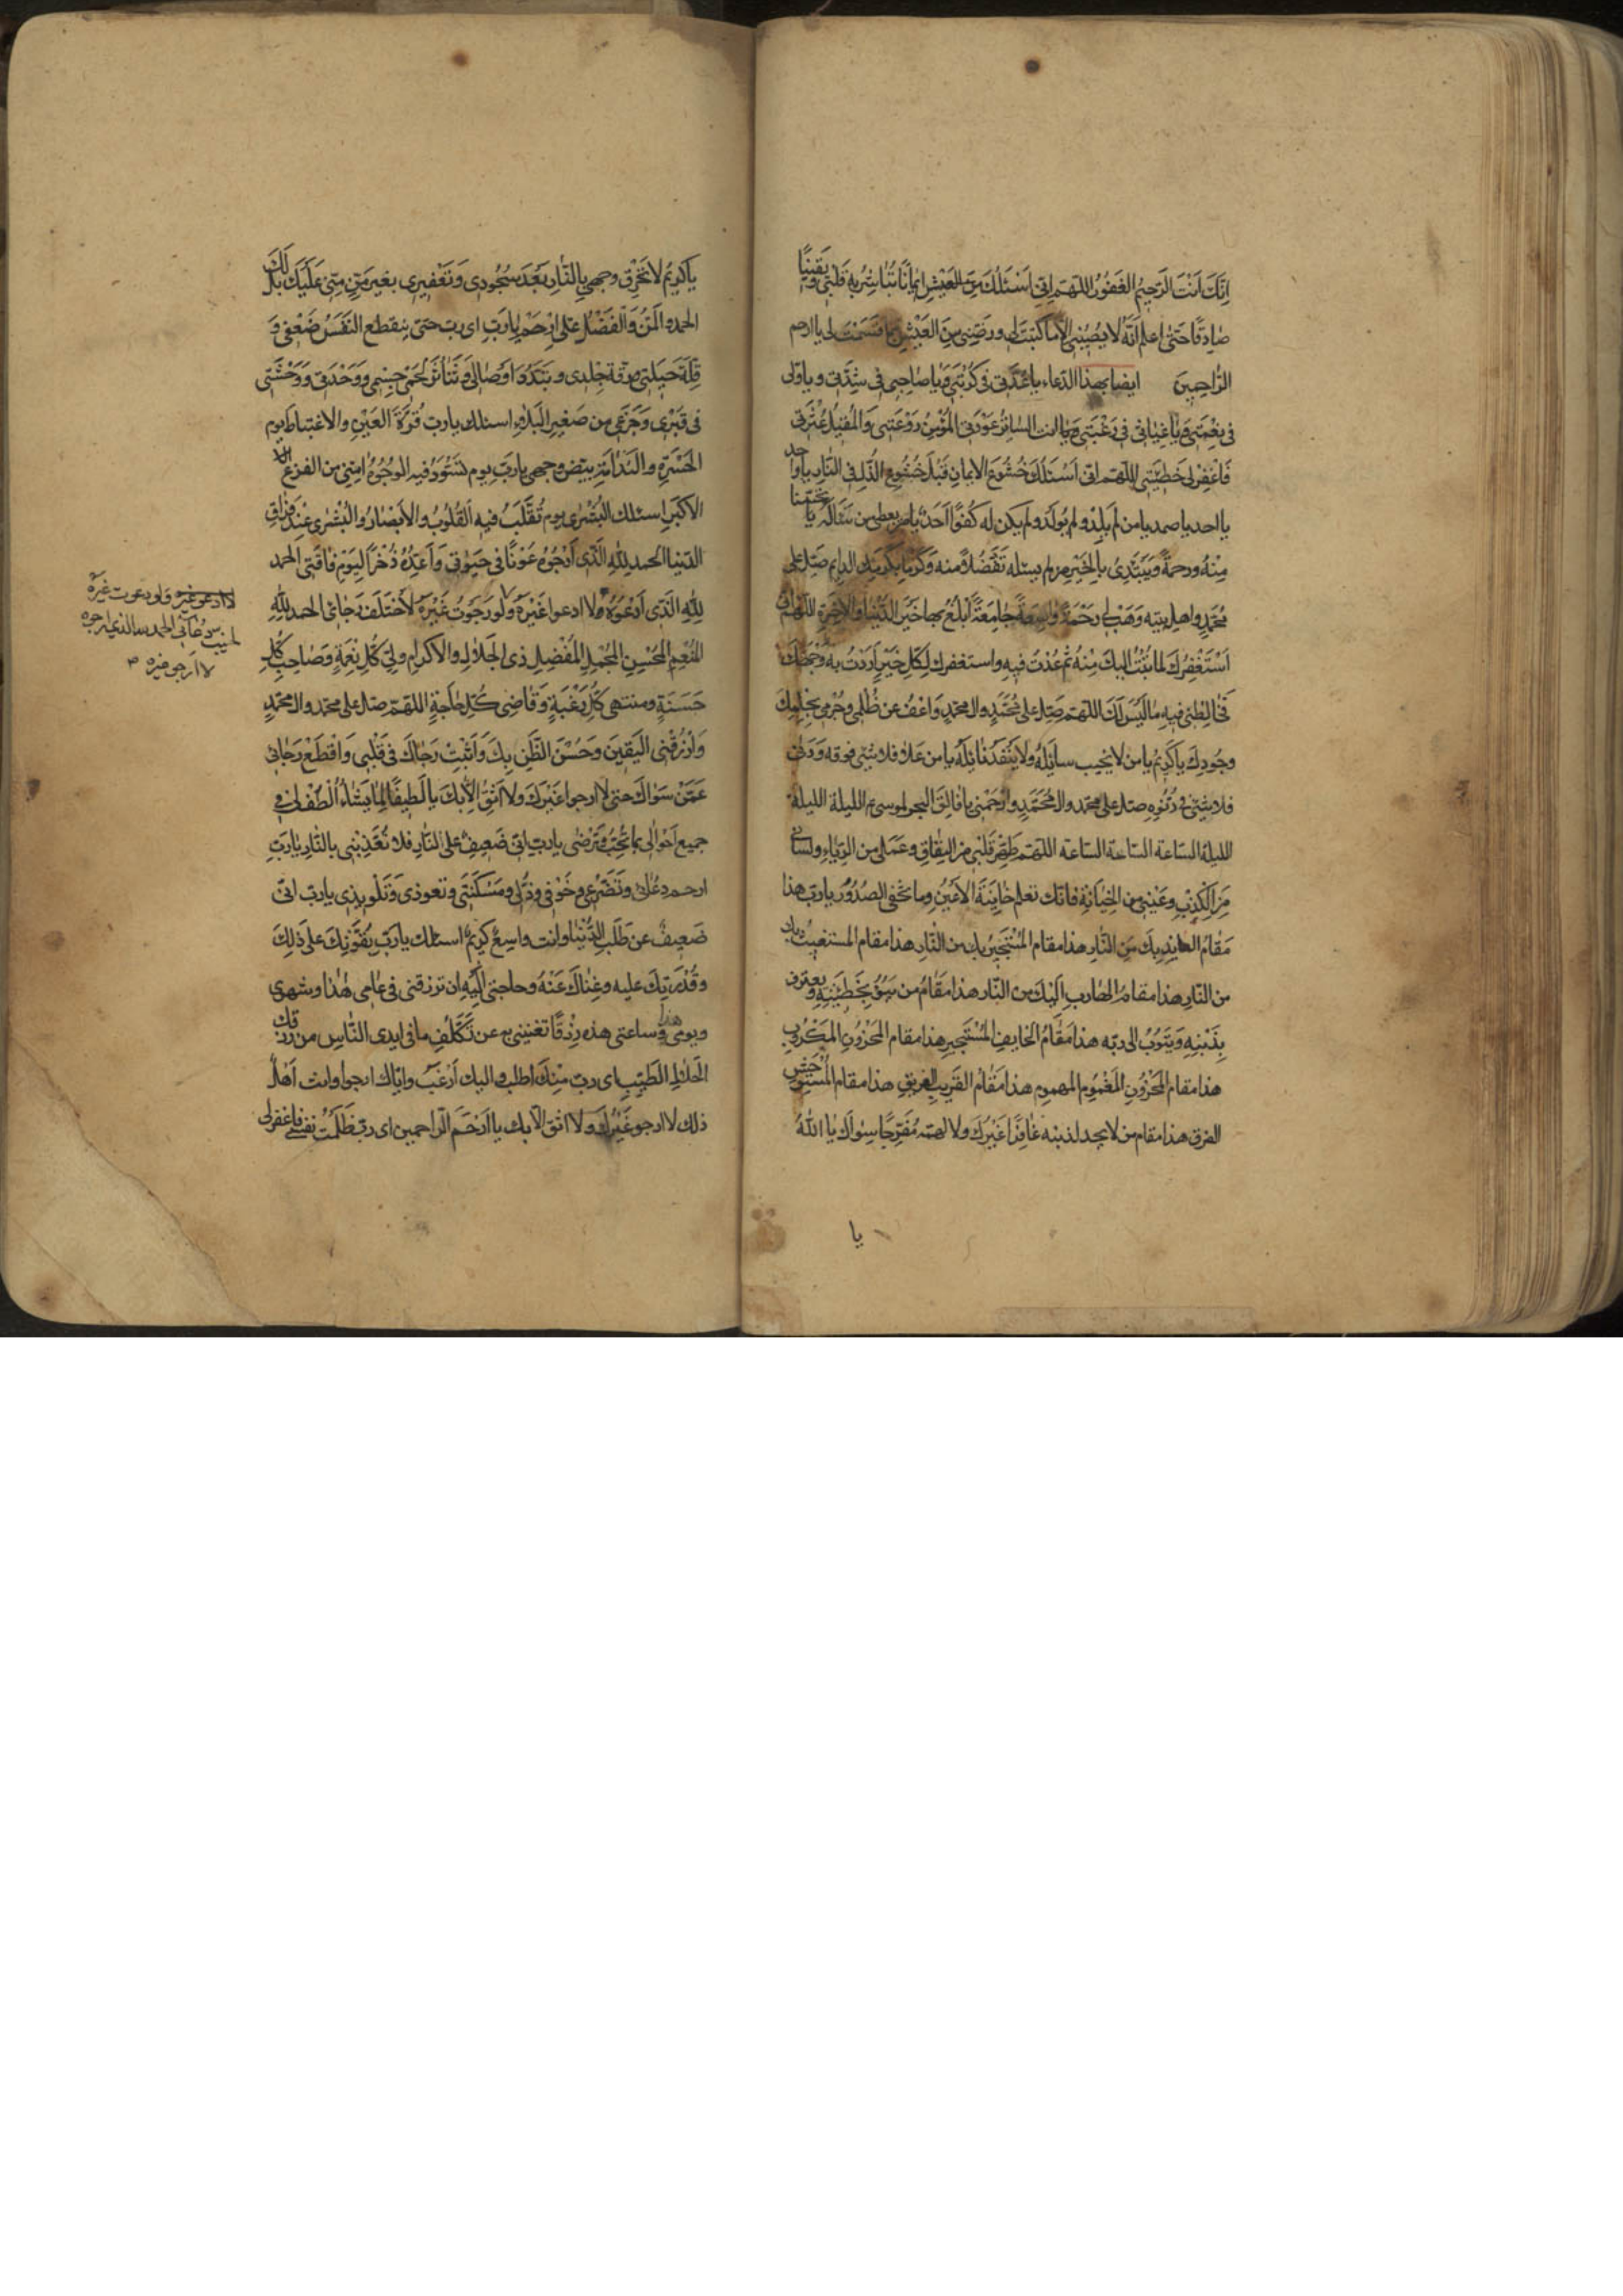 اِنَّكَ اَنْتَ الرَّحِيمُ الغَفُورُ اللهم اِنّى اَسْئَلُكَ مِنَ العَيْشِ اِيمَانًا تُبَاشِرُ بِهِ قَلْبِى وَيَقِينًا
صَادِقًا حَتّى اعلم اَنَّهُ لا يُصِيبُنِى اِلا مَا كَتَبْتَ لِى وَرَضِّنِى مِنَ العَيْشِ بِمَا قَسَمْتَ لى يا ارحم
الرَّاحِمِينَ ايضا بهذا الدّعاء يا عُدَّتِى فى كُرْبَتِى وَيَا صَاحِبِى فى شِدَّتِى و يا وَلِى
فى نِعْمَتِى وَيَا غِيَاثِى فى رَغْبَتِى يا انت السَّاتِرُ عَوْرَتِى المُؤْمِنُ رَوْعَتِى وَالمُقِيلُ عَثْرَتِى
فَاغْفِرْ لِى خَطِيئَتِى اللهم انى اَسْئَلُكَ خُشُوعَ الايمانِ قَبْلَ خُشُوعِ الذُّلِ فى النَّارِ يا واحد
يا احد يا صمد يا من لَمْ يَلِدْ و لم يُولَدْ و لم يكن له كُفُوًا اَحَدٌ يا من يعطى من سَئَالَهُ تحننا
مِنْهُ و رحمةً وَيَبْتَدِئُ بِالخَيْرِ من لم يسئله تَفَضُّلاً منه وَكَرَمًا بِكَرَمِكَ الدايم صَلِّ على
مُحَمَّدٍ و اهل بيته وَهَبْ لى رَحْمَةً وَاسِعَةً جَامِعَةً اَبْلُغُ بها خَيْرَ الدُّنْيَا وَالاخِرَةِ اللهم انى
اَسْتَغْفِرُكَ لما تُبْتُ اليكَ مِنْهُ ثم عُدْتُ فِيهِ و استغفرك لِكُلِ خَيْرٍ اَرَدْتُ به وَجْهَكَ
فَخَالَطَنِى فيهِ مَا لَيْسَ لَكَ اللهم صَلِّ على مُحَمَّدٍ و ال محمدٍ وَاعْفُ عن ظُلْمِى وَجُرْمِى بِحِلْمِكَ
وجُودِكَ يا كَرِيمُ يا من لا يخيب سائِلُهُ ولا يَنْفَدُ نَائِلُهُ يا من عَلا فلا شئ فوقه وَدَنى
فلا شئ دُونَهُ صل على محمد و ال مُحَمَّدٍ وَارْحَمْنِى يا فَالِقَ البحر لموسى الليلة الليلة
الليلة السّاعة السّاعة السّاعة اللهم طَهِّرْ قَلْبِى من النِفَاقِ وعَمَلِى من الرِّيَاءِ ولِسَانِى
مِنَ الكَذِبِ وعَيْنِى من الخِيَانَةِ فانّك تعلم خَايِنَةَ الاَعْيُنِ وما تخفى الصُدُورُ يا ربّ هذا
مَقَامُ العَائِذِ بِكَ مِنَ النَّارِ هذا مقام المُسْتَجِيرِ بك من النَّار هذا مقام المستغيث بك
من النَّارِ هذا مقامُ الهَارِبِ اِلَيْكَ من النّار هذا مَقَامُ من يَبُوءُ بِخَطِيئَتِهِ وَيعترف
بِذَنْبِهِ وَيَتُوبُ الى ربّه هذا مَقَامُ الخَايفِ المُسْتَجِيرِ هذا مقام المَحْزُونِ المَكْرُوبِ
هذا مقام المَحْزُونِ المَغْمُوم المهموم هذا مَقَام الغَرِيبِ الغَرِيقِ هذا مقام المُسْتَوْحِشِ
الفرق هذا مقام من لا يجد لذنبه غَافِرًا غَيْرَكَ ولا لهمه مُفَرِّجًا سِوَاكَ يا اللهُ
يا
يا كَرِيمُ لا تُحْرِقْ وجهى بِالنَّارِ بَعْدَ سُجُودِى وَتَعْفِيرِى بغير مَنٍّ مِنِّى عَلَيْكَ بل لَكَ
الحَمْدُ وَالمَنُّ وَالفَضْلُ عَلَىَّ اِرْحَمْ يا رَبِ اى رب حتى يَنقطع النَّفَسُ ضَعْفِى وَ
قِلَّةَ حِيلَتِى ورِقَّة جِلْدِى و تَبَدُّدَ اَوْصَالِى وَتَنَاثُرَ لَحْمِى جسمِى وَوَحْدَتِى وَوَحْشَتِى
فى قَبْرِى وَجَزَعِى من صَغِيرِ البَلاءِ اسئلك يا رب قُرَّةَ العَيْنِ والاغتباط يوم
الحَسْرَةِ والنَدَامَةِ بيّض وجهى يا رَبِّ يوم تَسْوَدُّ فيه الوُجُوهُ امِنِّى من الفزع
الاكبرِ اسئلك البُشْرى يوم تُقَلَّبُ فيه القُلُوبُ والاَبْصَارُ والبُشْرى عِنْدَ فِرَاقِ
الدّنيا الحمد لِلّهِ الَّذِى اَرْجُوهُ عَوْنًا فى حَيوتِى وَاُعِدُّهُ ذُخْرًا لِيَوْمِ فَاقَتِى الحمد
لِلّهِ الَّذِى اَدْعُوهُ و لا ادعوا غَيْرَهُ و لو رَجَوْتُ غَيْرَهُ لاَخْتَلَفَ رَجَائى الحمد لِلّهِ
المُنْعِمِ المُحْسِنِ المُجْمِلِ المُفْضِلِ ذى الجَلالِ والاكرامِ ولِىِّ كُلِّ نِعْمَةٍ وَصَاحِبِ كُلِّ
حَسَنَةٍ ومنتهى كُلِّ رَغْبَةٍ وَقَاضِى كُلِّ حَاجَةٍ اللهم صل على محمد و ال محمدٍ
وَارْزُقْنِى اليَقِينَ وَحُسْنَ الظَّنِ بِكَ وَاَثْبِتْ رَجَاكَ فى قَلْبِى وَاقْطَعْ رَجَائى
عَمَّنْ سِوَاكَ حتى لا ارجوا غَيْرَكَ و لا اَثِقُ اِلاّ بِكَ يا لَطِيفًا لِمَا يَشَاءُ اُلْطُفْ لِى فى
جميع اَحْوَالِى بِمَا تُحِبُّ وَتَرْضى يا ربّ اِنّى ضَعِيفٌ على النَّارِ فلا تُعَذِّبْنِى بالنَّارِ يا رَبِّ
ارحم دُعَائى وتَضَرُّعِى وخَوْفِى وذُلِّى ومَسْكَنَتِى وتعوذى وَتَلْويذى يا ربّ انّى
ضَعِيفٌ عن طَلَبِ الدُّنْيَا وانت واسِعٌ كَرِيمٌ اسئلك يا رَبِّ بِقُوَّتِكَ على ذلِكَ
و قُدْرَتِكَ عليه وغِنَاكَ عَنْهُ وحاجتى اِلَيْهِ ان ترزقنى فى عَامِى هذا وشهرى
ويومى هذا وساعتى هذه رِزْقًا تغنينى به عن تَكَلُّفِ ما فى ايدى النَّاسِ من رزقك
الحَلالِ الطَيِّبِ اى ربّ مِنْكَ اطلب و اليك اَرْغَبُ و ايّاك ارجوا وانت اَهْلُ
ذلك لا ارجو غَيْرَكَ و لا اثق الا بك يا اَرْحَمَ الرّاحمين اى ربّ ظَلَمْتُ نفسى فاغفر لى
لا ادعو غيره ولو دعوت غَيْرَهُ
لخيب دُعَائى الحمد لله الذى ارجوه
لا ارجو غيره